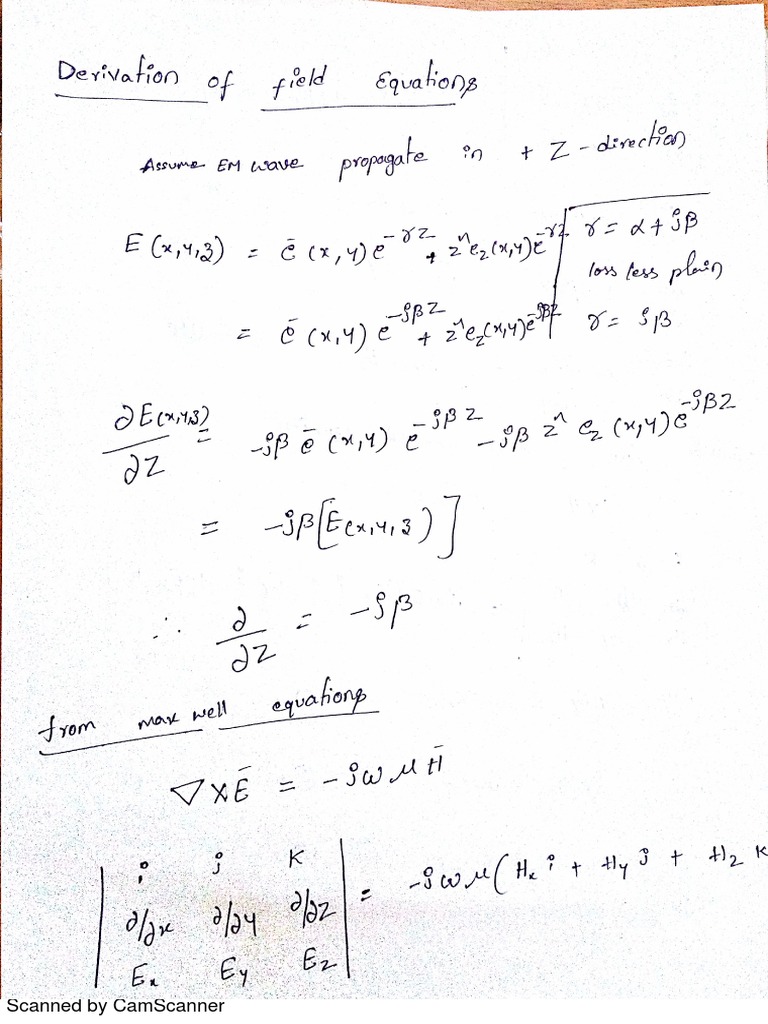 Derivation of field Equations
Assume EM wave propagate in + Z - direction
E (x,y,z) = ē (x,y) e^-γz + z^ e_z(x,y) e^-γz | γ = α + jβ
loss less plain
= ē (x,y) e^-jβz + z^ e_z(x,y) e^-jβz | γ = jβ
∂E(x,y,z)/∂z = -jβ ē (x,y) e^-jβz - jβ z^ e_z (x,y) e^-jβz
= -jβ[E(x,y,z)]
∴ ∂/∂z = -jβ
from max well equations
∇ × Ē = - jωμ H̄
| i j K |
| ∂/∂x ∂/∂y ∂/∂z | = -jωμ( Hx i + Hy j + Hz K
| Ex Ey Ez |
Scanned by CamScanner